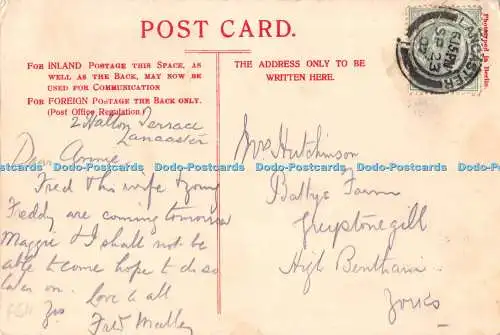 POST CARD.
FOR INLAND POSTAGE THIS SPACE, AS
WELL AS THE BACK, MAY NOW BE
USED FOR COMMUNICATION
FOR FOREIGN POSTAGE THE BACK ONLY.
(Post Office Regulation.)
THE ADDRESS ONLY TO BE
WRITTEN HERE.
Phototyped in Berlin.
LANCASTER
6.15 PM
SP 23
2 Hatton Terrace
Lancaster
Dear Annie,
Fred & his wife & young
Freddy are coming tomorrow
Maggie & I shall not be
able to come hope to do so
later on.
Love to all
Yrs
Fred
Mrs Hutchinson
Farm
Greystonegill
High Bentham
Yorks
Dodo-Postcards Dodo-Postcards Dodo-Postcards Dodo-Postcards Dodo-Postcards